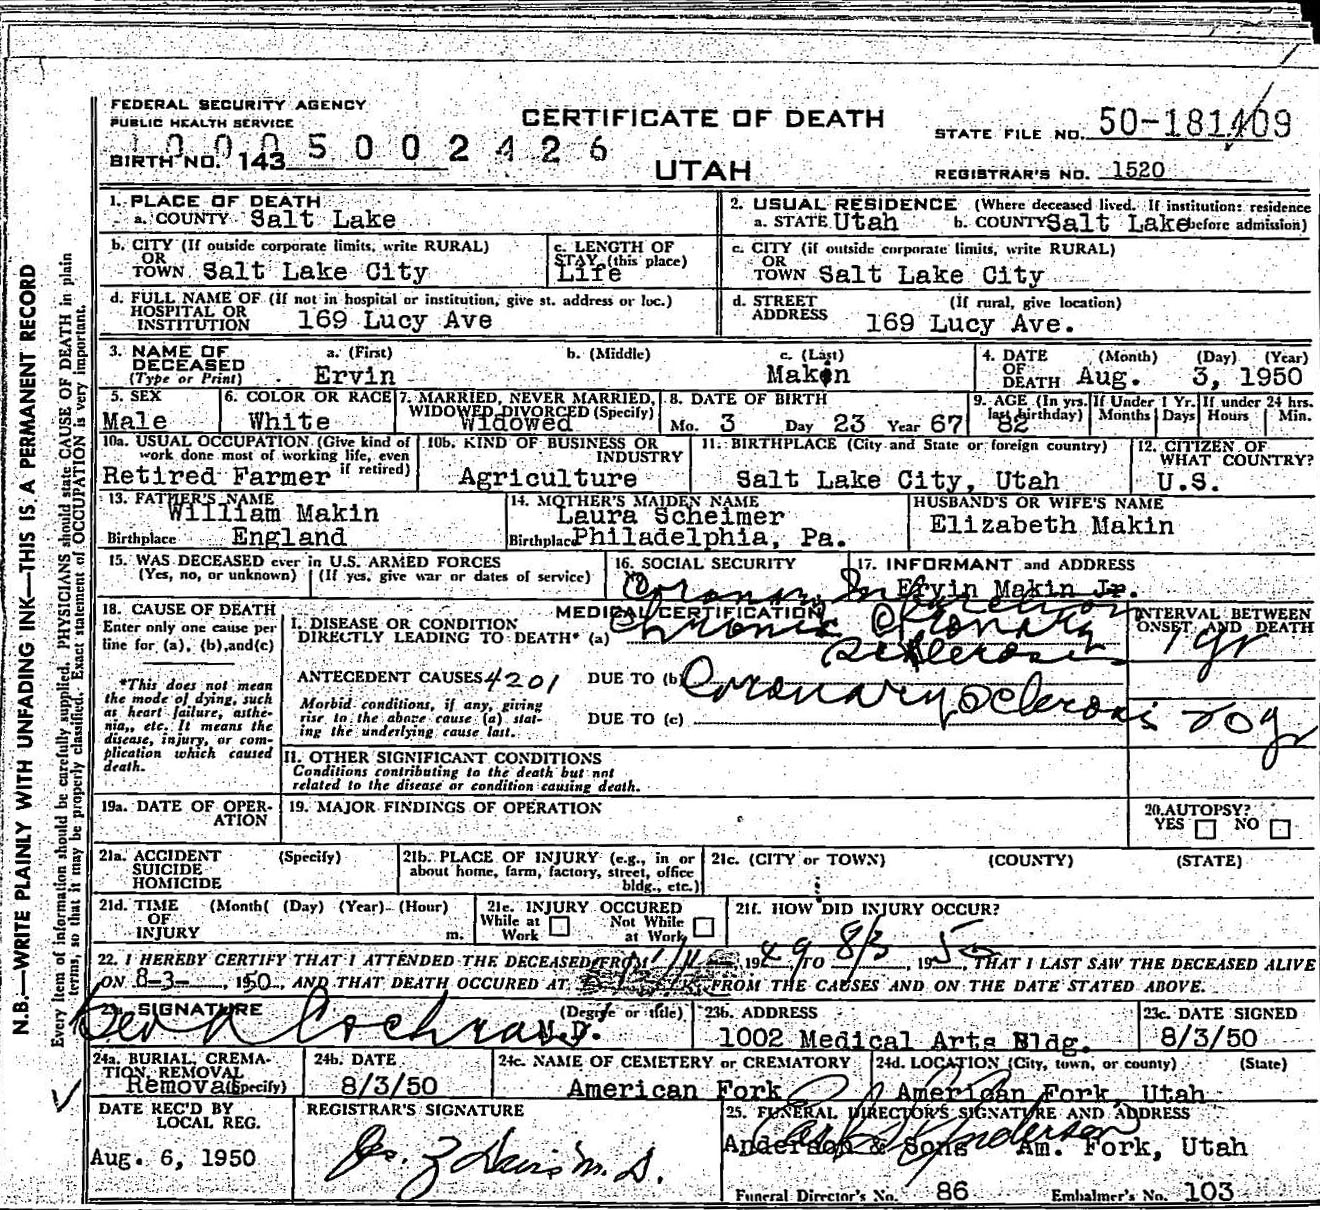 FEDERAL SECURITY AGENCY
PUBLIC HEALTH SERVICE
CERTIFICATE OF DEATH
STATE FILE NO. 50-181409
1 0 0 0 5 0 0 2 4 2 6
BIRTH NO. 143
UTAH
REGISTRAR'S NO. 1520
N.B.—WRITE PLAINLY WITH UNFADING INK—THIS IS A PERMANENT RECORD
Every item of information should be carefully supplied. PHYSICIANS should state CAUSE OF DEATH in plain
terms, so that it may be properly classified. Exact statement of OCCUPATION is very important.
1. PLACE OF DEATH
a. COUNTY Salt Lake
2. USUAL RESIDENCE (Where deceased lived. If institution: residence
a. STATE Utah b. COUNTY Salt Lake before admission)
b. CITY (If outside corporate limits, write RURAL)
OR
TOWN Salt Lake City
c. LENGTH OF
STAY (this place)
Life
c. CITY (if outside corporate limits, write RURAL)
OR
TOWN Salt Lake City
d. FULL NAME OF (If not in hospital or institution, give st. address or loc.)
HOSPITAL OR
INSTITUTION 169 Lucy Ave
d. STREET (If rural, give location)
ADDRESS 169 Lucy Ave.
3. NAME OF DECEASED
(Type or Print)
a. (First) b. (Middle) c. (Last)
Ervin Makin
4. DATE OF DEATH (Month) (Day) (Year)
Aug. 3, 1950
5. SEX
Male
6. COLOR OR RACE
White
7. MARRIED, NEVER MARRIED,
WIDOWED, DIVORCED (Specify)
Widowed
8. DATE OF BIRTH
Mo. 3 Day 23 Year 67
9. AGE (In yrs. last birthday)
82
If Under 1 Yr. Months Days
If under 24 hrs. Hours Min.
10a. USUAL OCCUPATION (Give kind of
work done most of working life, even
if retired)
Retired Farmer
10b. KIND OF BUSINESS OR
INDUSTRY
Agriculture
11. BIRTHPLACE (City and State or foreign country)
Salt Lake City, Utah
12. CITIZEN OF
WHAT COUNTRY?
U.S.
13. FATHER'S NAME
William Makin
Birthplace England
14. MOTHER'S MAIDEN NAME
Laura Scheimer
Birthplace Philadelphia, Pa.
HUSBAND'S OR WIFE'S NAME
Elizabeth Makin
15. WAS DECEASED ever in U.S. ARMED FORCES
(Yes, no, or unknown) (If yes, give war or dates of service)
16. SOCIAL SECURITY
17. INFORMANT and ADDRESS
Ervin Makin Jr.
18. CAUSE OF DEATH
Enter only one cause per
line for (a), (b), and (c)
*This does not mean
the mode of dying, such
as heart failure, asthe-
nia, etc. It means the
disease, injury, or com-
plication which caused
death.
MEDICAL CERTIFICATION
Coronary Infarction
I. DISEASE OR CONDITION
DIRECTLY LEADING TO DEATH* (a) Chronic Coronary
Sclerosis
INTERVAL BETWEEN
ONSET AND DEATH
1 yr
ANTECEDENT CAUSES 4201 DUE TO (b) Coronary Sclerosis
Morbid conditions, if any, giving
rise to the above cause (a) stat-
ing the underlying cause last.
DUE TO (c)
II. OTHER SIGNIFICANT CONDITIONS
Conditions contributing to the death but not
related to the disease or condition causing death.
19a. DATE OF OPER-
ATION
19. MAJOR FINDINGS OF OPERATION
20. AUTOPSY?
YES NO
21a. ACCIDENT (Specify)
SUICIDE
HOMICIDE
21b. PLACE OF INJURY (e.g., in or
about home, farm, factory, street, office
bldg., etc.)
21c. (CITY or TOWN) (COUNTY) (STATE)
21d. TIME (Month( (Day) (Year) (Hour)
OF
INJURY m.
21e. INJURY OCCURED
While at Work Not While at Work
21f. HOW DID INJURY OCCUR?
22. I HEREBY CERTIFY THAT I ATTENDED THE DECEASED FROM, 1949 TO 8/3, 1950, THAT I LAST SAW THE DECEASED ALIVE
ON 8-3-, 1950, AND THAT DEATH OCCURED AT FROM THE CAUSES AND ON THE DATE STATED ABOVE.
23a. SIGNATURE (Degree or title)
Geo A Cochran M.D.
23b. ADDRESS
1002 Medical Arts Bldg.
23c. DATE SIGNED
8/3/50
24a. BURIAL, CREMA-
TION, REMOVAL
(Specify) Removal
24b. DATE
8/3/50
24c. NAME OF CEMETERY or CREMATORY
American Fork
24d. LOCATION (City, town, or county) (State)
American Fork, Utah
DATE REC'D BY
LOCAL REG.
Aug. 6, 1950
REGISTRAR'S SIGNATURE
25. FUNERAL DIRECTOR'S SIGNATURE AND ADDRESS
Anderson & Sons Am. Fork, Utah
Funeral Director's No. 86 Embalmer's No. 103